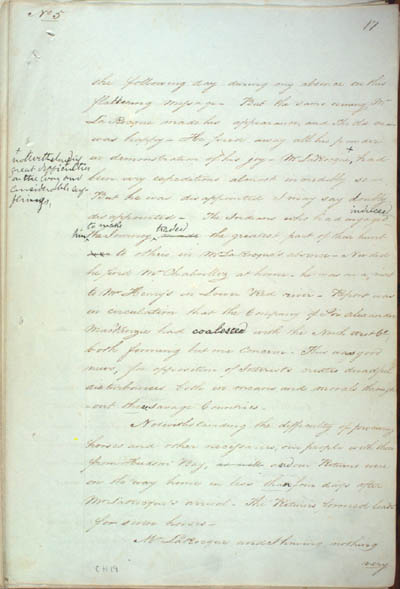 No 5
17
the following day during my absence on this
flattering message - But the same evening Mr
LaRoque made his appearance, and
was happy - He fired away all his powder
in demonstration of his joy - Mr LaRoque, + had
been very expeditious almost incredibly so
+ notwithstanding
great difficulties
on the way and
considerable suf-
ferings,
But he was disappointed I may say doubly
disappointed - The Indians who had induced
him to make the Journey traded the greatest part of their hunt
to others in LaRoque's absence -
he find Mr Chaboillez at home - he was on a visit
to Mr Henry's in Lower Red river - Report was
in circulation that the Company of Sir Alexander
MacKenzie had coalested with the North west Co.
both forming but one Concern - This was good
news, for opposition of Interests creates dreadful
disturbances both in means and morals through
-out the savage Countries -
Notwithstanding the difficulty of procuring
horses and other necessaries, our people with those
from Hudson Bay, as well as our Returns were
on the way home in less than four days after
Mr LaRocque's arrival - The Returns formed loads
for seven horses -
Mr LaRocque and I having nothing
very
CH19